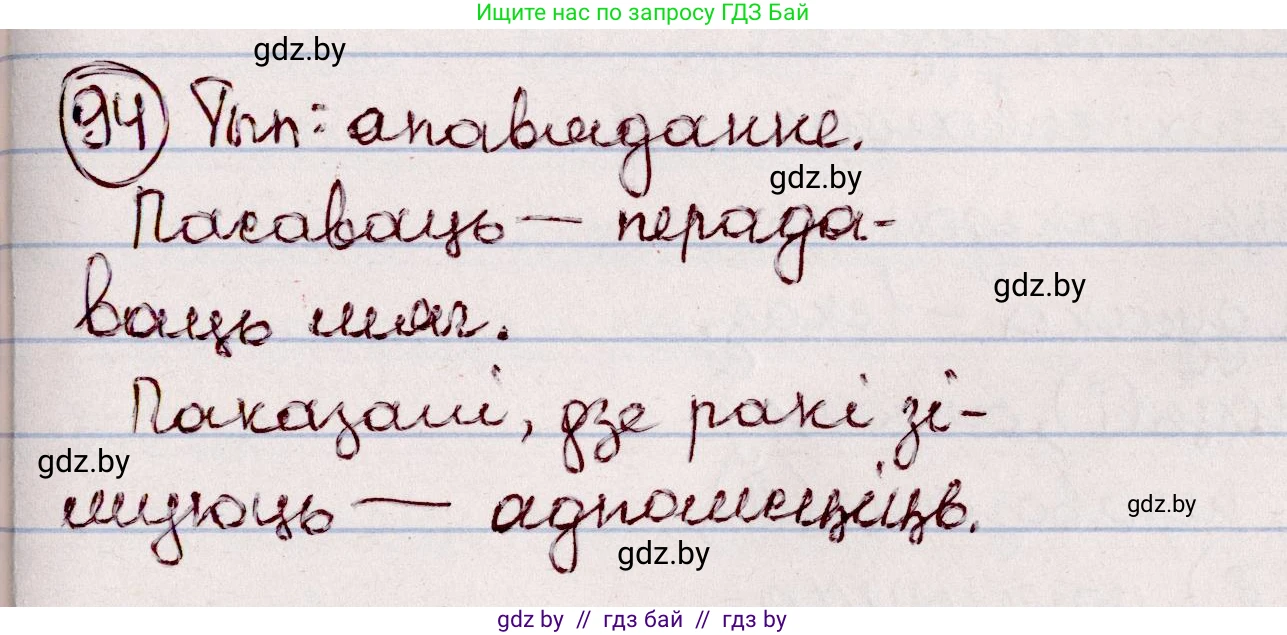 Ищите нас по запросу ГДЗ Бай
gdz.by
94 Тып: апавяданне.
gdz.by
Пасаваць — перада-
gdz.by
ваць мяч.
Паказалі, дзе ракі зі-
gdz.by
муюць — адпомсцілі.
gdz.by
gdz.by
gdz by // гдз бай // гдз by